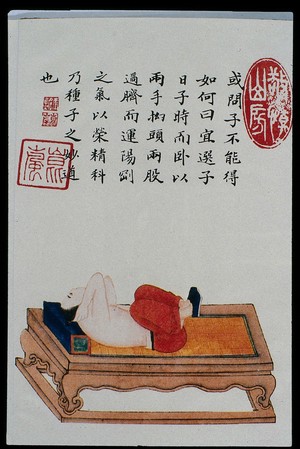 敬慎山房
或問子不能得
如何曰宜選子
日子時而卧以
兩手抱頭兩股
過臍而運陽剛
之氣以榮精科
乃種子之妙道
也